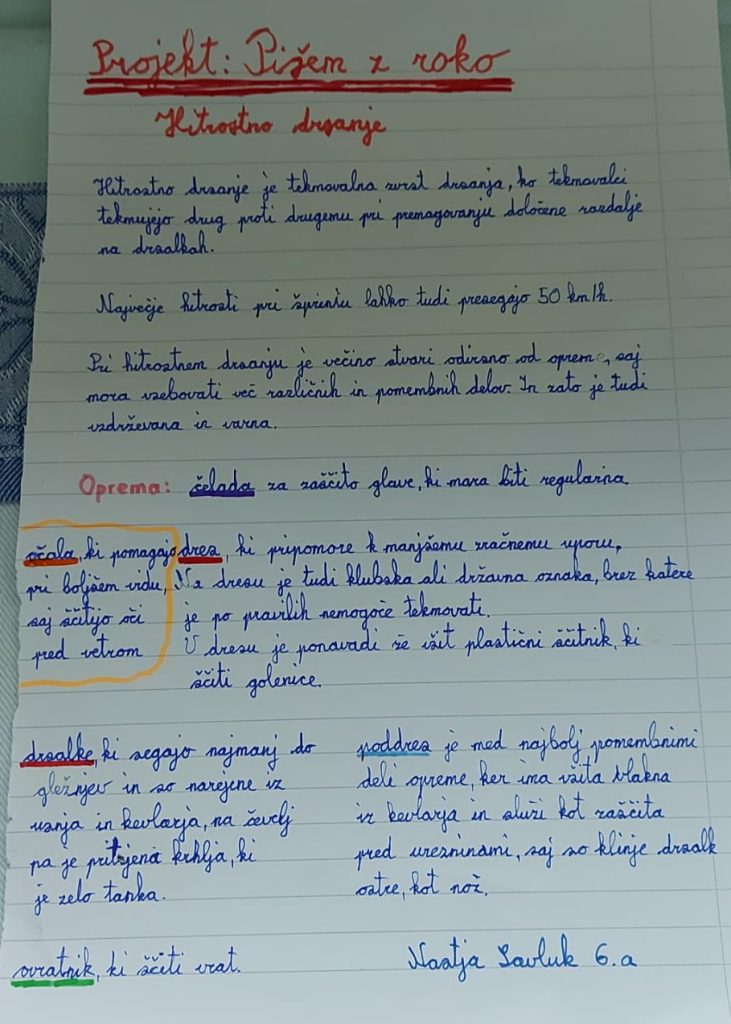 Projekt: Pišem z roko
Hitrostno drsanje
Hitrostno drsanje je tekmovalna zvrst drsanja, ko tekmovalci
tekmujejo drug proti drugemu pri premagovanju določene razdalje
na drsalkah.
Največje hitrosti pri šprintu lahko tudi presegajo 50 km/h.
Pri hitrostnem drsanju je večino stvari odvisno od opreme, saj
mora vsebovati več različnih in pomembnih delov. In zato je tudi
vzdrževana in varna.
Oprema: čelada za zaščito glave, ki mora biti regularna
očala, ki pomagajo
pri boljšem vidu,
saj ščitijo oči
pred vetrom
dres, ki pripomore k manjšemu zračnemu uporu.
Na dresu je tudi klubska ali državna oznaka, brez katere
je po pravilih nemogoče tekmovati.
U dresu je ponavadi že všit plastični ščitnik, ki
ščiti golenice.
drsalke, ki segajo najmanj do
gležnjev in so narejene iz
usnja in kevlarja, na čevelj
pa je pritrjena krhlja, ki
je zelo tanka.
poddres je med najbolj pomembnimi
deli opreme, ker ima všita vlakna
iz kevlarja in služi kot zaščita
pred urezninami, saj so klinje drsalk
ostre, kot nož.
ovratnik, ki ščiti vrat.
Nastja Savluk 6.a